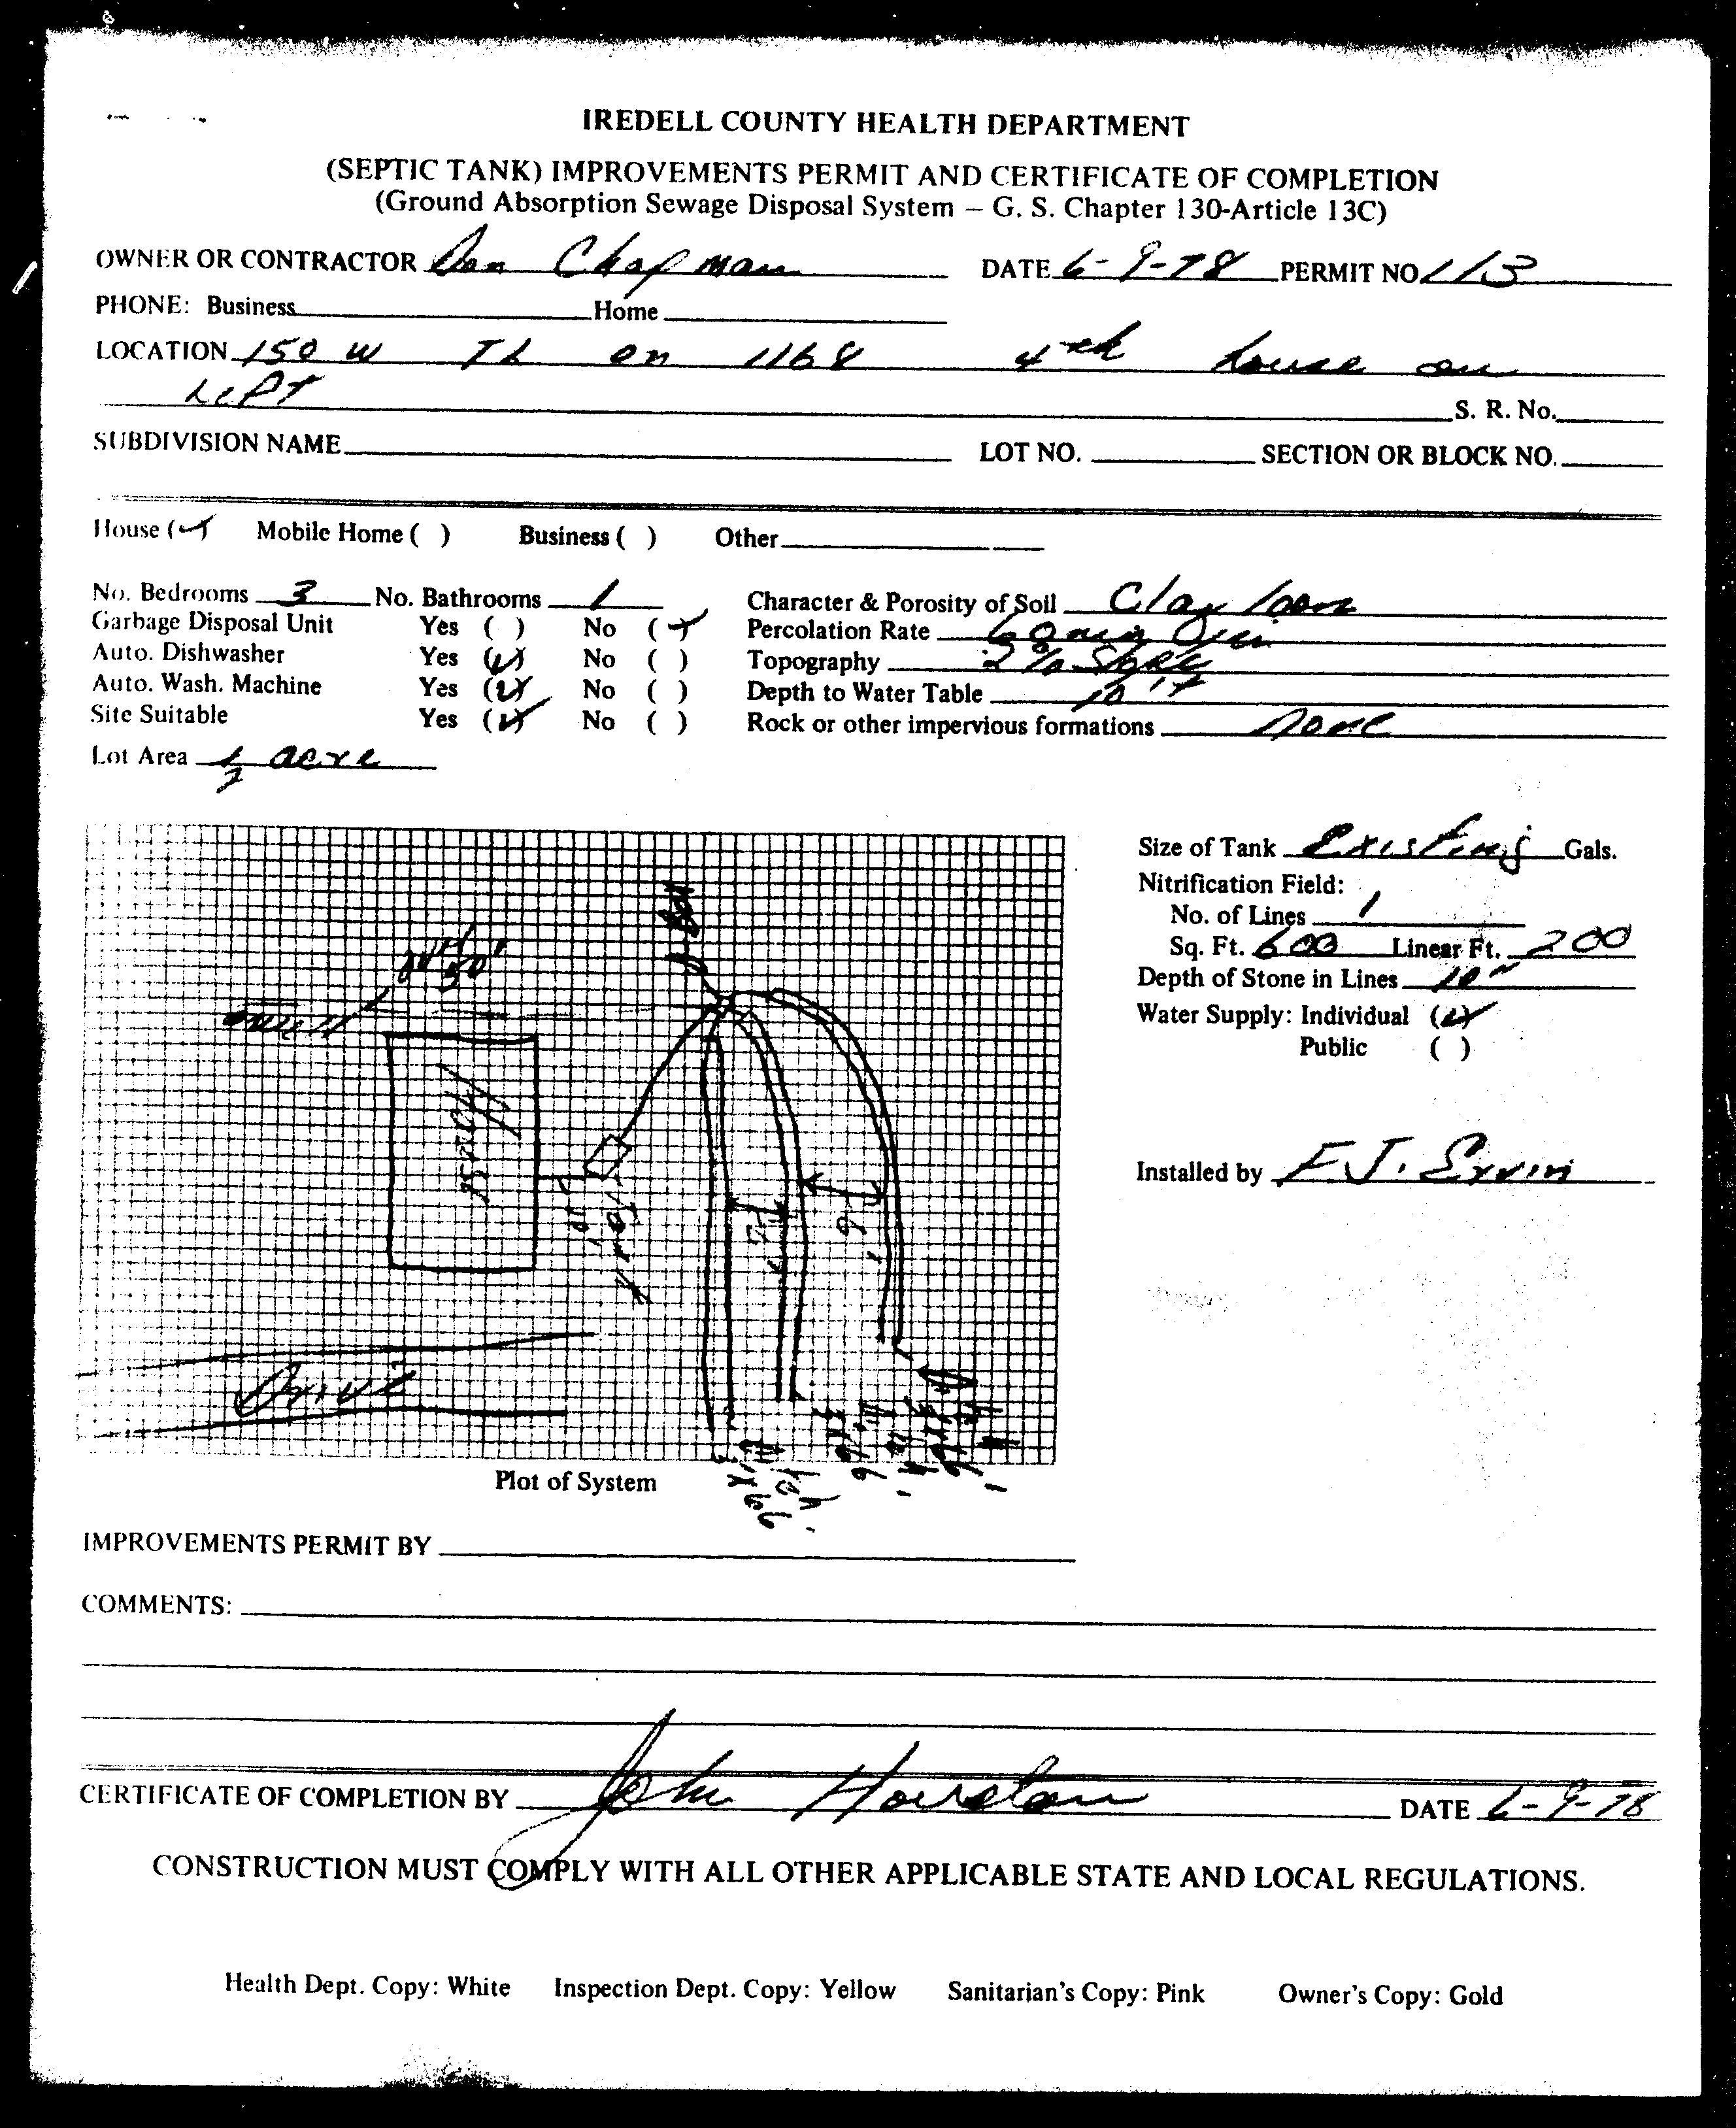 IREDELL COUNTY HEALTH DEPARTMENT
(SEPTIC TANK) IMPROVEMENTS PERMIT AND CERTIFICATE OF COMPLETION
(Ground Absorption Sewage Disposal System – G. S. Chapter 130-Article 13C)
OWNER OR CONTRACTOR Don Chapman DATE 6-9-78 PERMIT NO 113
PHONE: Business Home
LOCATION 150 W TL on 1168 4th house on
Left S. R. No.
SUBDIVISION NAME LOT NO. SECTION OR BLOCK NO.
House (✓) Mobile Home ( ) Business ( ) Other
No. Bedrooms 3 No. Bathrooms 1 Character & Porosity of Soil Clay loam
Garbage Disposal Unit Yes ( ) No (✓) Percolation Rate 60 min
Auto. Dishwasher Yes (✓) No ( ) Topography 2% Slope
Auto. Wash. Machine Yes (✓) No ( ) Depth to Water Table 10
Site Suitable Yes (✓) No ( ) Rock or other impervious formations None
Lot Area 1/2 acre
Size of Tank Existing Gals.
Nitrification Field:
No. of Lines 1
Sq. Ft. 600 Linear Ft. 200
Depth of Stone in Lines 10"
Water Supply: Individual (✓)
Public ( )
Installed by F.J. Ervin
50'
House
10'
6'
Drive
Plot of System
IMPROVEMENTS PERMIT BY
COMMENTS:
CERTIFICATE OF COMPLETION BY John Houston DATE 6-9-78
CONSTRUCTION MUST COMPLY WITH ALL OTHER APPLICABLE STATE AND LOCAL REGULATIONS.
Health Dept. Copy: White Inspection Dept. Copy: Yellow Sanitarian's Copy: Pink Owner's Copy: Gold